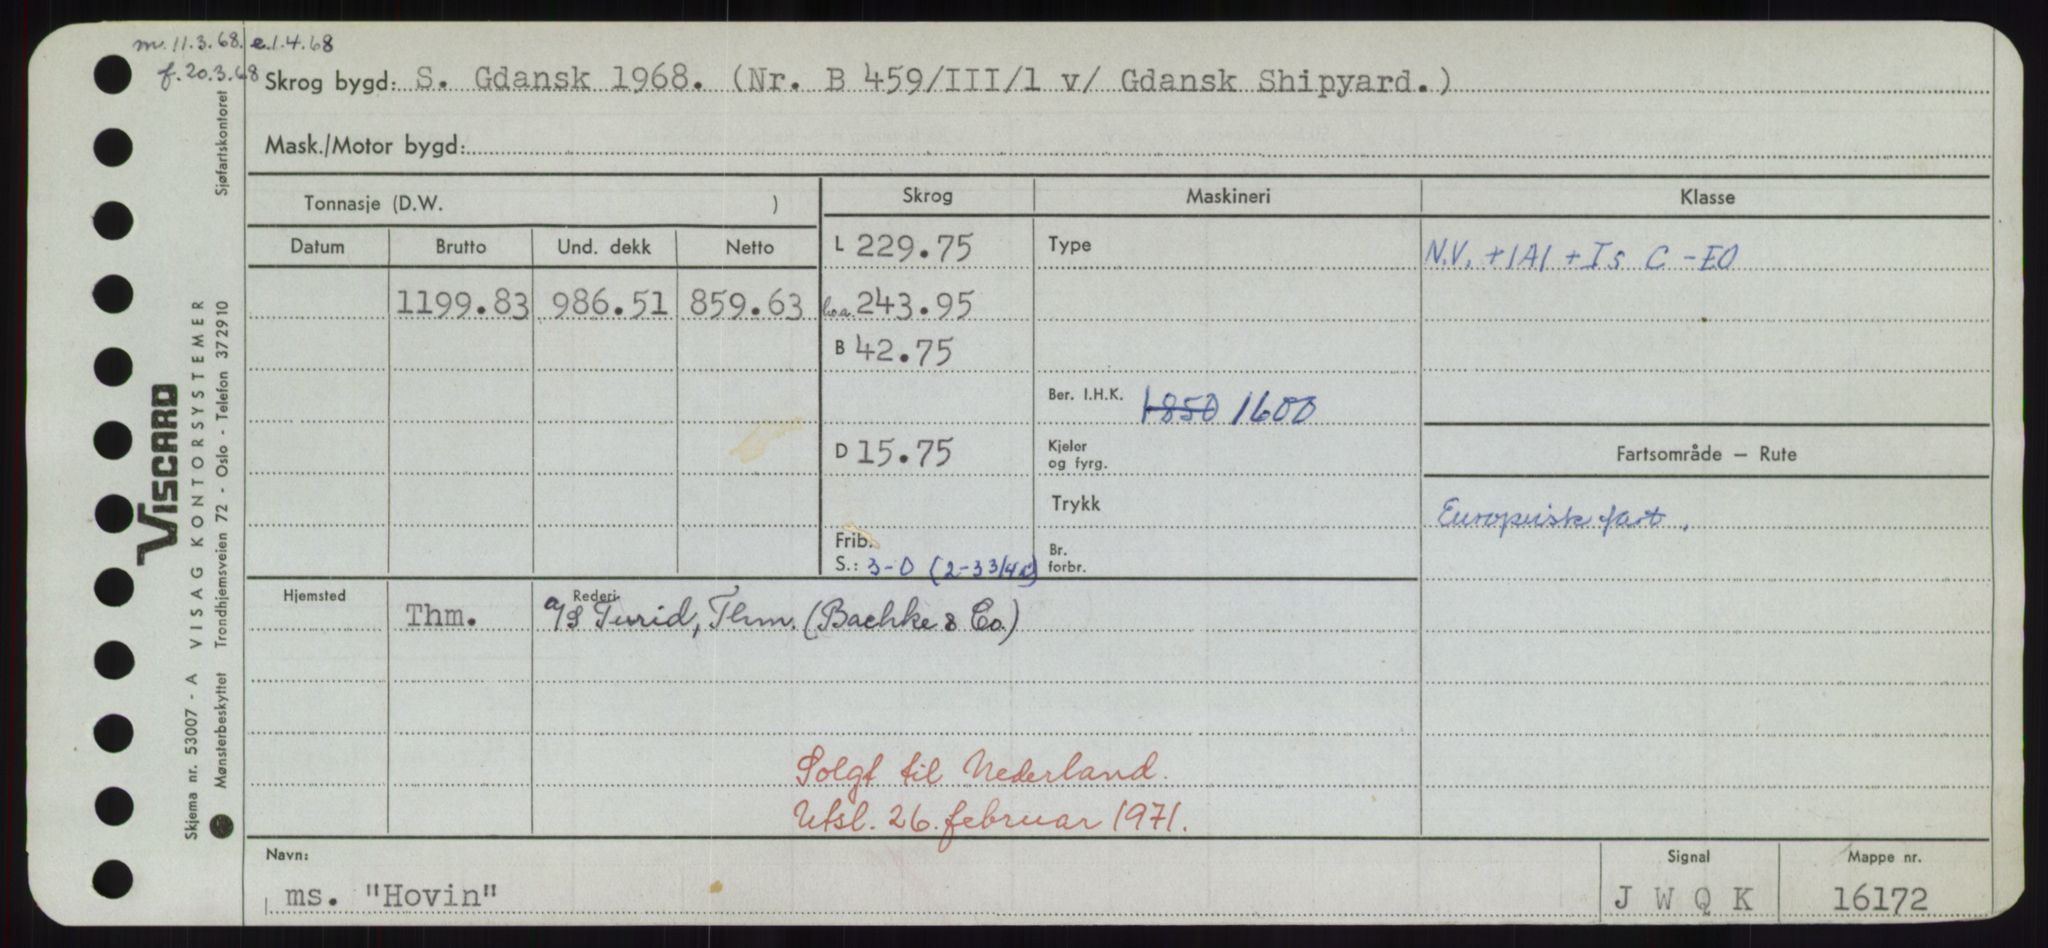 m. 11.3.68. e.1.4.68
f. 20.3.68
Skrog bygd: S. Gdansk 1968. (Nr. B 459/III/1 v/ Gdansk Shipyard.)
Mask./Motor bygd:
Tonnasje (D.W. )
Skrog Maskineri Klasse
Datum Brutto Und. dekk Netto
L 229.75 Type N.V. +1A1 +Is C -EO
1199.83 986.51 859.63 l.o.a. 243.95
B 42.75
Ber. I.H.K. 1850 1600
D 15.75 Kjeler og fyrg. Fartsområde — Rute
Trykk Europeisk fart.
Frib. S.: 3-0 (2-3 3/4) Br. forbr.
Hjemsted Rederi
Thm. A/S Turid, Thm. (Bachke & Co.)
Solgt til Nederland.
Utsl. 26. februar 1971.
Navn: Signal Mappe nr.
ms. "Hovin" J W Q K 16172
Sjøfartskontoret
VISCARD
VISAG KONTORSYSTEMER
Trondhjemsveien 72 - Oslo - Telefon 372910
Skjema nr. 53007 - A
Mønsterbeskyttet